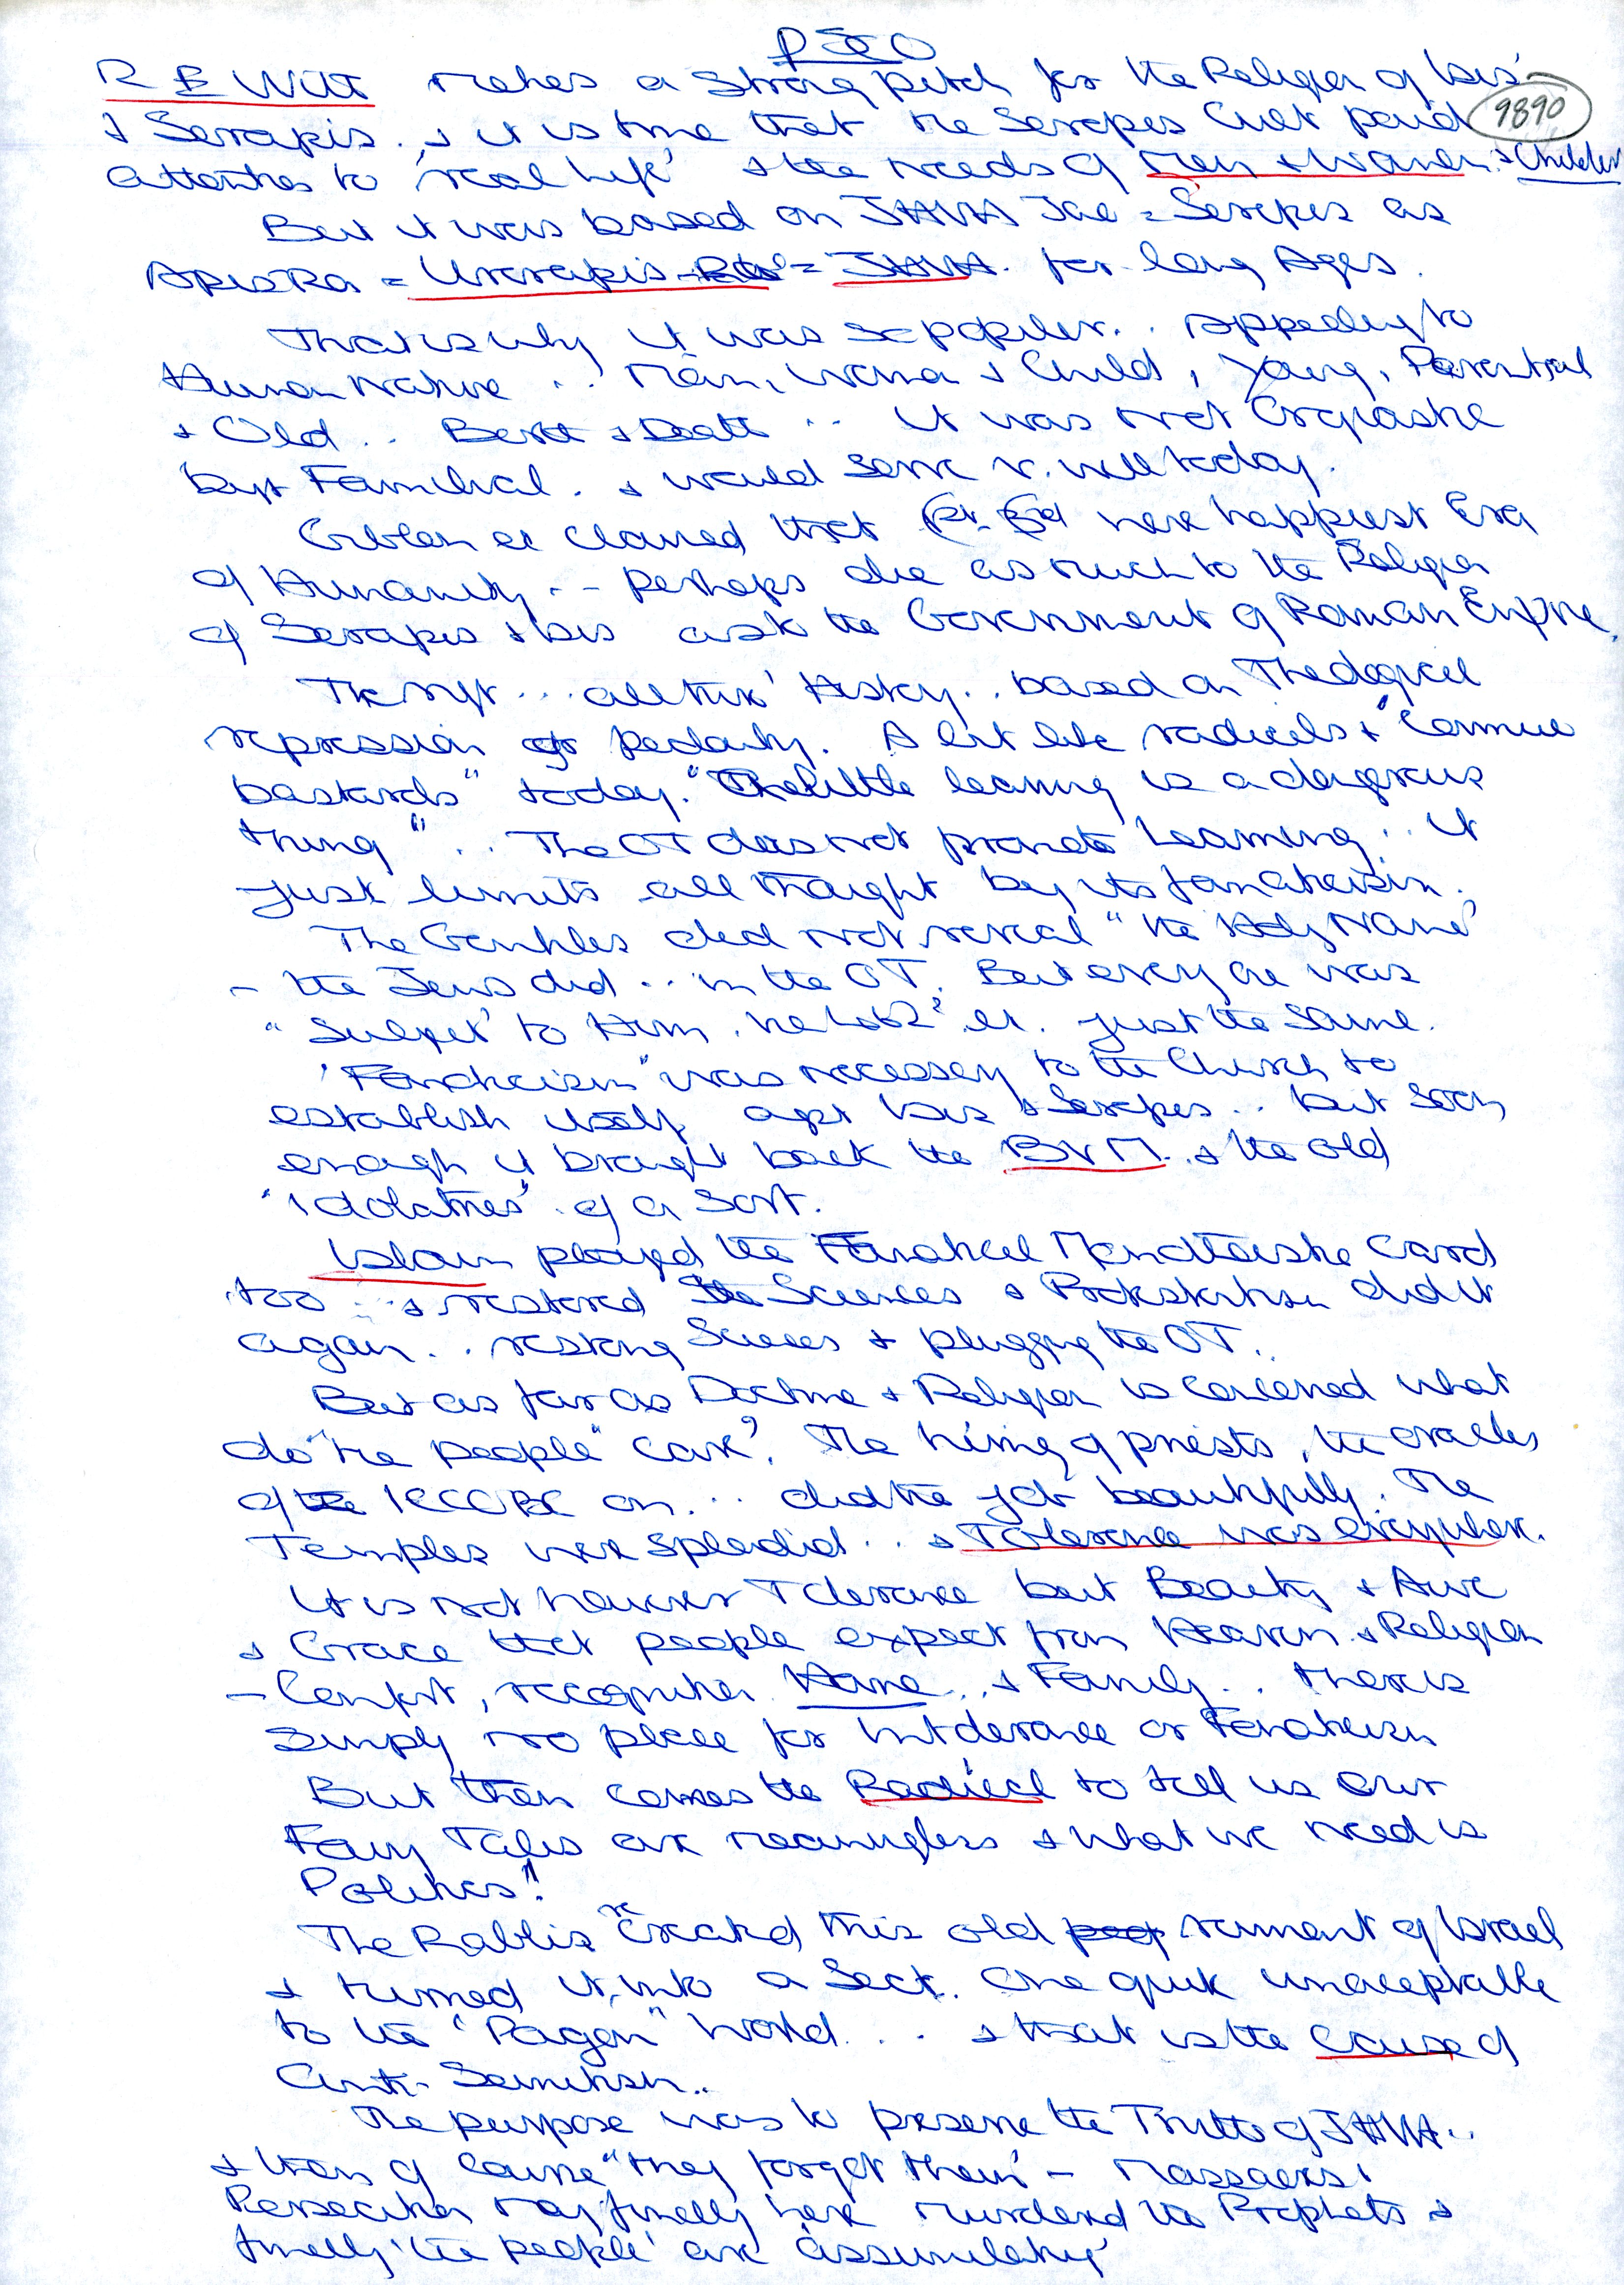 PSO
R E Witt makes a strong pitch for the Religion of Isis
9890
& Serapis. & it is true that the Serapis Cult paid
attention to 'real life' & the needs of men & women & Children
But it was based on JAHVA Jae = Serapis as
= Userapis = JAHVA. for long Ages.
That is why it was so popular.. appealing to
Human Nature .. Man, Woman & Child, Young, Parental
& Old .. Birth & Death .. it was not Orgiastic
but Familial. & would serve v. well today.
Gibbon claimed that were happiest Era
of Humanity -- perhaps due as much to the Religion
of Serapis & Isis as to the Government of Roman Empire.
The rift ... all thro' History.. based on Theological
repression or pedantry. A bit like radicals & "Commie
bastards" today. "The little learning is a dangerous
thing" .. The OT does not promote Learning .. it
just limits all thought by its fanaticism.
The Gentiles did not reveal "the Holy Name"
- the Jews did .. in the OT. But every one was
"Subject" to Him, just the same.
'Fanaticism' was necessary to the Church to
establish itself agst Isis & Serapis .. but soon
enough it brought back the BVM. & the old
'idolatries' of a sort.
Islam played the Fanatical Monotheistic Card
too .. & restored the Sciences & Protestantism did it
again .. restoring Sciences & plugging the OT..
But as far as Doctrine & Religion is concerned what
do "the people" care? The hiring of priests, the oracles
of the 1000BC on ... did the job beautifully. The
Temples were splendid .. & Tolerance was everywhere.
It is not however Tolerance but Beauty & Awe
& Grace that people expect from Heaven & Religion
- Comfort, recognition Home & Family .. there is
simply no place for Intolerance or Fanaticism
But then comes the Radical to tell us our
Fairy Tales are meaningless & what we need is
Politics"!
The Rabbis recreated this old remnant of Israel
& turned it into a Sect. One quite unacceptable
to the "Pagan" World ... & that is the cause of
Anti-Semitism..
The purpose was to preserve the Truth of JAHVA..
& then of course "they forget them" - Massacres!
Persecution may finally have murdered the Prophets &
finally 'the people' are 'assimilating'